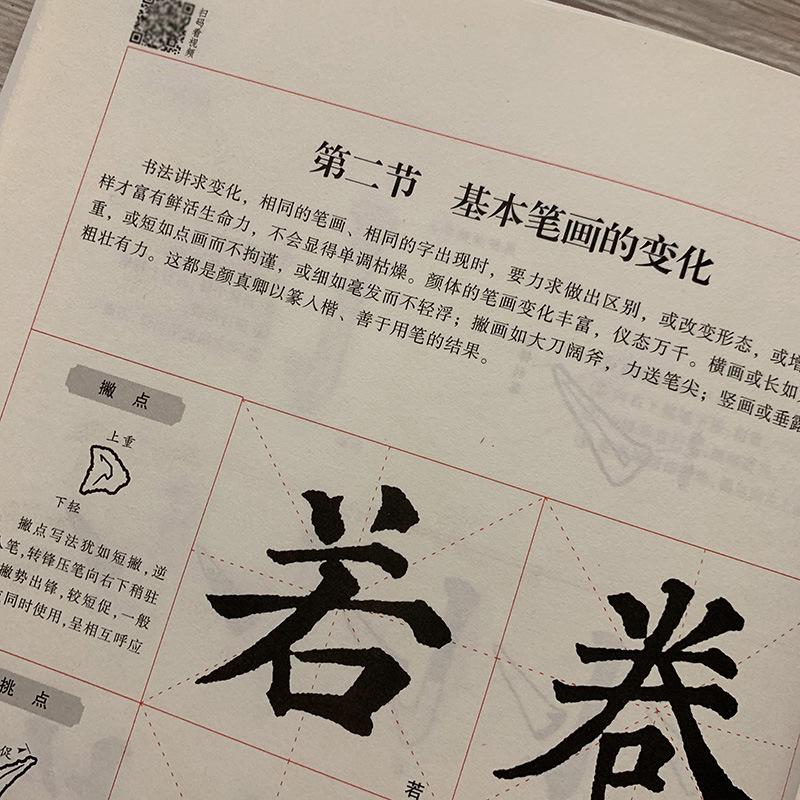 扫码看视频
第二节 基本笔画的变化
书法讲求变化，相同的笔画、相同的字出现时，要力求做出区别，或改变形态，或增
样才富有鲜活生命力，不会显得单调枯燥。颜体的笔画变化丰富，仪态万千。横画或长如
重，或短如点画而不拘谨，或细如毫发而不轻浮；撇画如大刀阔斧，力送笔尖；竖画或垂露
粗壮有力。这都是颜真卿以篆入楷、善于用笔的结果。
撇 点
上重
下轻
撇点写法犹如短撇,逆
入笔,转锋压笔向右下稍驻
撇势出锋,较短促,一般
同时使用,呈相互呼应
挑 点
促
若
若